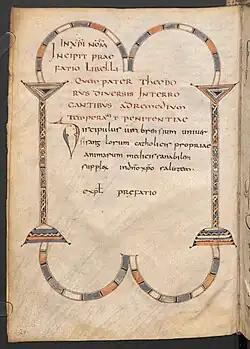 IN XPI NOMI
INCIPIT PRAE
FATIO LIBELLI
QUEM PATER THEODO
RUS DIVERSIS INTERRO
GANTIBUS AD REMEDIUM
TEMPERAUIT PENITENTIAE
Discipulus umbrensium univer
sis anglorum catholicis propriae
animarum medicis sanabilem
supplex in dno xpo salutem.
expł PREFATIO